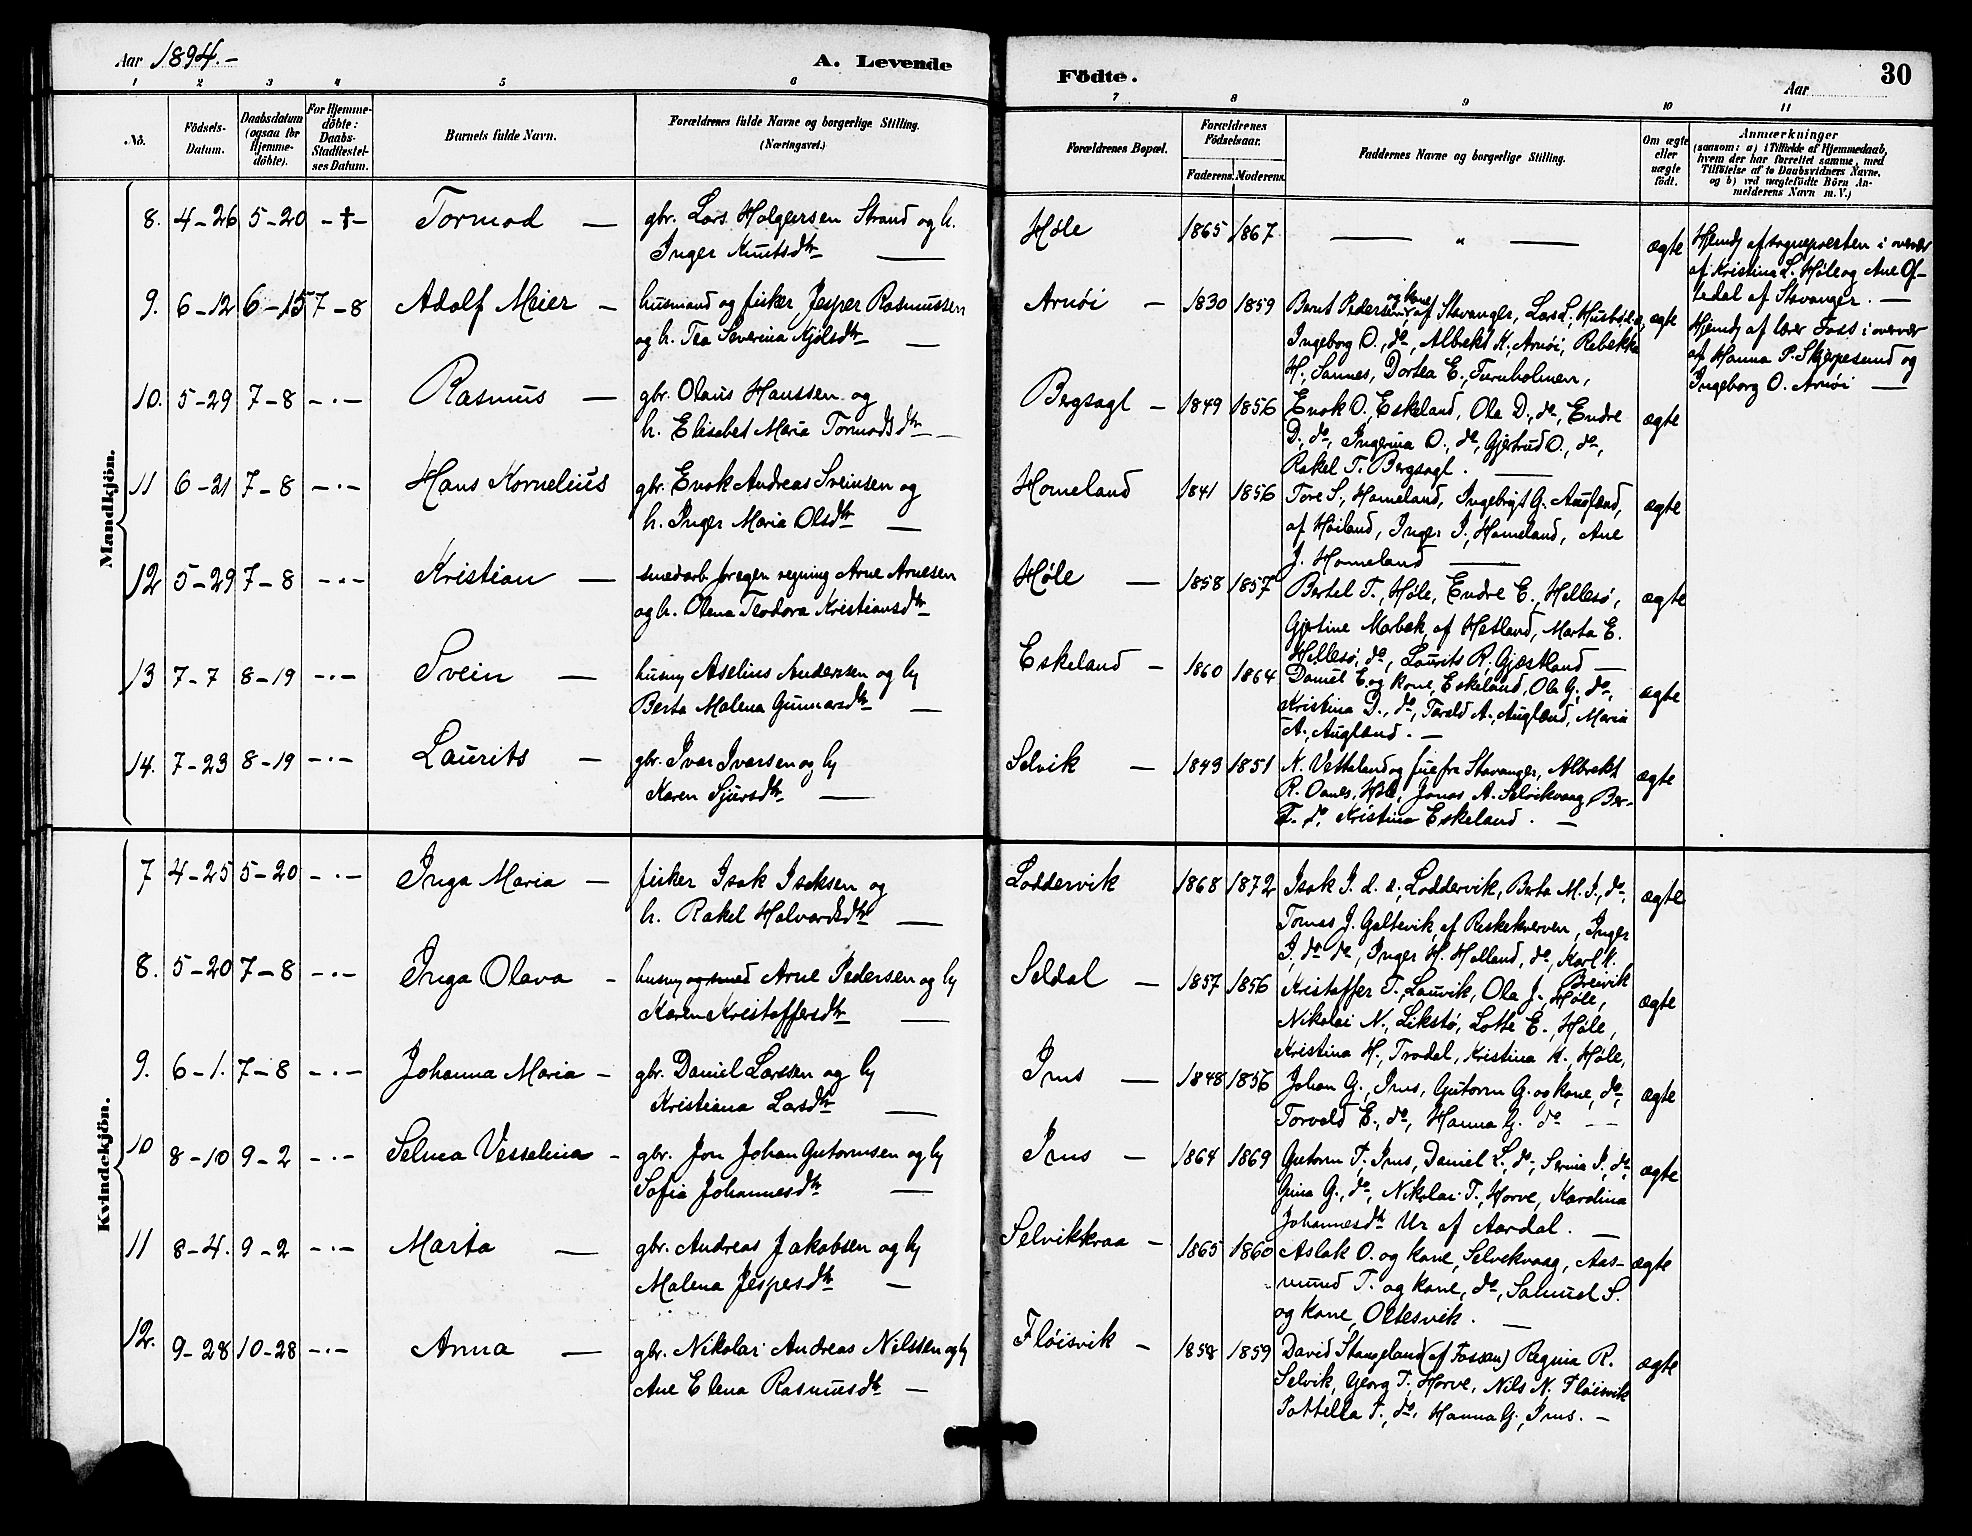 Aar 1894.-
A. Levende
Födte.
Aar
30
1 2 3 4 5 6 7 8 9 10 11
No.
Födsels-Datum.
Daabsdatum (ogsaa for Hjemme-döbte).
For Hjemme-döbte: Daabs-Stadfæstelses Datum.
Barnets fulde Navn.
Forældrenes fulde Navne og borgerlige Stilling. (Næringsvei.)
Forældrenes Bopæl.
Forældrenes Födselsaar.
Faderens. Moderens.
Faddernes Navne og borgerlige Stilling.
Om ægte eller uægte födt.
Anmærkninger
(saasom: a) i Tilfælde af Hjemmedaab,
hvem der har forrettet samme, med
Tilföielse af to Daabsvidners Navne,
og b) ved uægtefödte Börn An-
melderens Navn m. V.)
Mandkjön.
8. 4-26 5-20 -†- Tormod — gbr. Lars Holgersen Strand og h.
Inger Knutsdtr —
Høle 1865 1867 — " — ægte
Hjemdf af sognepresten i overvær
af Kristina L. Høle og Ane Of-
tedal af Stavanger. —
9. 6-12 6-15 7-8 Adolf Meier — husmand og fisker Jesper Rasmussen
og h. Tea Severina Kjølsdtr —
Arnøi — 1830 1859 Bernt Pedersen og kone af Stavanger, Lars L.
Ingeborg O., do, Albrekt K. Arnøi, Rebekka
H., Sannes, Dortea E., Turnholmen, ægte
Hjemdf af lærer Foss i overvær
af Hanna P. Skjørpesund og
Ingeborg O. Arnøi —
10. 5-29 7-8 -.- Rasmus — gbr. Olaus Hanssen og
h. Elisabet Maria Tormodsdtr —
Bergsagl — 1849 1856 Enok O., Eskeland, Ola D., do, Endre
D., do, Ingerina O., do, Gjertrud O., do,
Rakel T. Bergsagl. — ægte
11 6-21 7-8 -.- Hans Kornelius gbr. Enok Andreas Sveinsen og
h. Inger Maria Olsdtr —
Homeland 1841 1856 Tore S., Homeland, Ingebrigt G.
af Høiland, Inger I., Homeland, Ane
J. Homeland — ægte
12 5-29 7-8 -.- Kristian — smedarb. for egen regning Arne Arnesen
og h. Olena Teodora Kristiansdtr
Høle — 1858 1857 Bertel T., Høle, Endre E., Hellesø,
Gjertine Marbæk, af Hetland, Marta E.
Hellesø, do, Laurits R. Gjæstland — ægte
13 7-7 8-19 -.- Svein — husm Aselius Anderssen og h
Berta Malena Gunnarsdtr —
Eskeland — 1860 1864 Daniel E. og kone, Eskeland, Ola G., do,
Kristina D., do, Tarald A., Augland, Maria
A., Augland. — ægte
14. 7-23 8-19 -.- Laurits — gbr. Ivar Ivarsen og h
Karen Sjursdtr —
Selvik — 1849 1851 N. Vetteland og frue fra Stavanger, Albrekt
R. Oanes, Høle, Jonas A. Selvikvaag Ber-
T. do, Kristina Eskeland. — ægte
Kvindekjön.
7 4-25 5-20 -.- Inga Maria — fisker Isak Isaksen og
h. Rakel Halvardsdtr —
Loddervik 1868 1872 Isak I. d. e., Loddervik, Berta M. I., do.
Tomas J. Galtevik, af Riskekverven, Inger
I., do do, Inger H. Helland, do, Karl K.
Breivik ægte
8. 5-20 7-8 -.- Inga Olava - husm og smed Arne Pedersen og h
Karen Kristoffersdtr —
Seldal — 1857 1856 Kristoffer T., Lauvik, Ola J., Høle,
Nikolai N., Likstø, Lotte E., Høle,
Kristina H., Trodal, Kristina K., Høle, ægte
9. 6-1. 7-8 -.- Johanna Maria - gbr. Daniel Larssen og h
Kristiana Larsdtr —
Ims — 1848 1856 Johan G., Ims, Gutorm G. og kone, do,
Torvald E., do, Hanna G. do - - ægte
10 8-10 9-2 -.- Selma Vesselina - gbr. Jon Johan Gutormsen og h
Sofia Johannesdtr —
Ims — 1864 1869 Gutorm T., Ims, Daniel L., do, Serina I., do,
Gina G., do, Nikolai T., Horve, Karolina
Johannesdtr Ur af Aardal. — ægte
11 8-4. 9-2 -.- Marta — gbr. Andreas Jakobsen og h
Malena Jespersdtr —
Selvikkraa - 1865 1860 Aslak O. og kone, Selvekvaag, Aas-
mund T. og kone, do, Samuel S.
og kone, Oltesvik. — ægte
12. 9-28 10-28 -.- Anna — gbr. Nikolai Andreas Nilssen og h
Ane Elena Rasmusdtr —
Fløisvik - 1858 1859 David Stangeland (af Fossan) Regina R.
Selvik, Georg T., Horve, Nils N. Fløisvik
Pottella T., do, Hanna G., Ims. — ægte